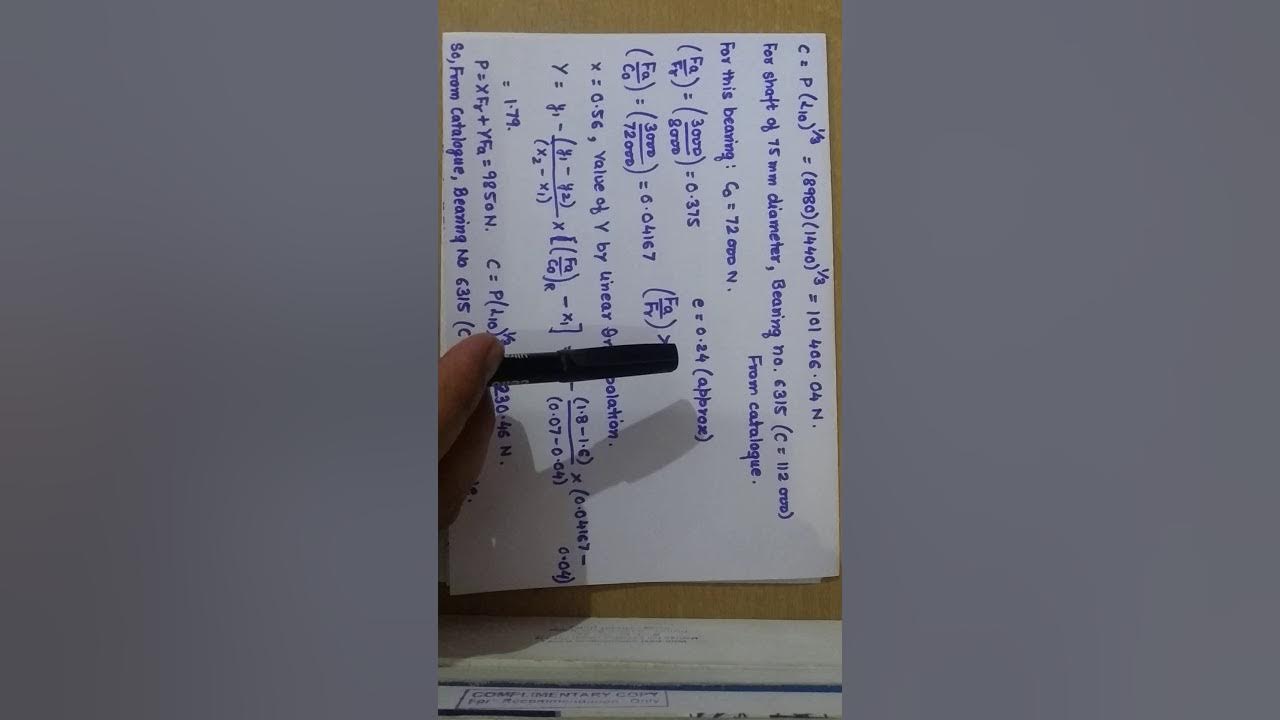 C = P (L10)^1/3 = (8980)(1440)^1/3 = 101 406.04 N.
For shaft of 75 mm diameter, Bearing no. 6315 (C = 112 000)
From catalogue.
For this bearing: C0 = 72 000 N.
(Fa/Fr) = (3000/8000) = 0.375 e = 0.24 (approx)
(Fa/C0) = (3000/72000) = 0.04167 (Fa/Fr) >
x = 0.56, Value of Y by linear
Y = y1 - (y1 - y2)/(x2 - x1) x [(Fa/C0)R - x1] - (1.8-1.6)/(0.07-0.04) x (0.04167 - 0.04)
= 1.79.
P = XFr + YFa = 9850 N. C = P(L10)^1/3 230.46 N.
So, From Catalogue, Bearing No 6315 (C
COMPLIMENTARY COPY
For Recommendation Only